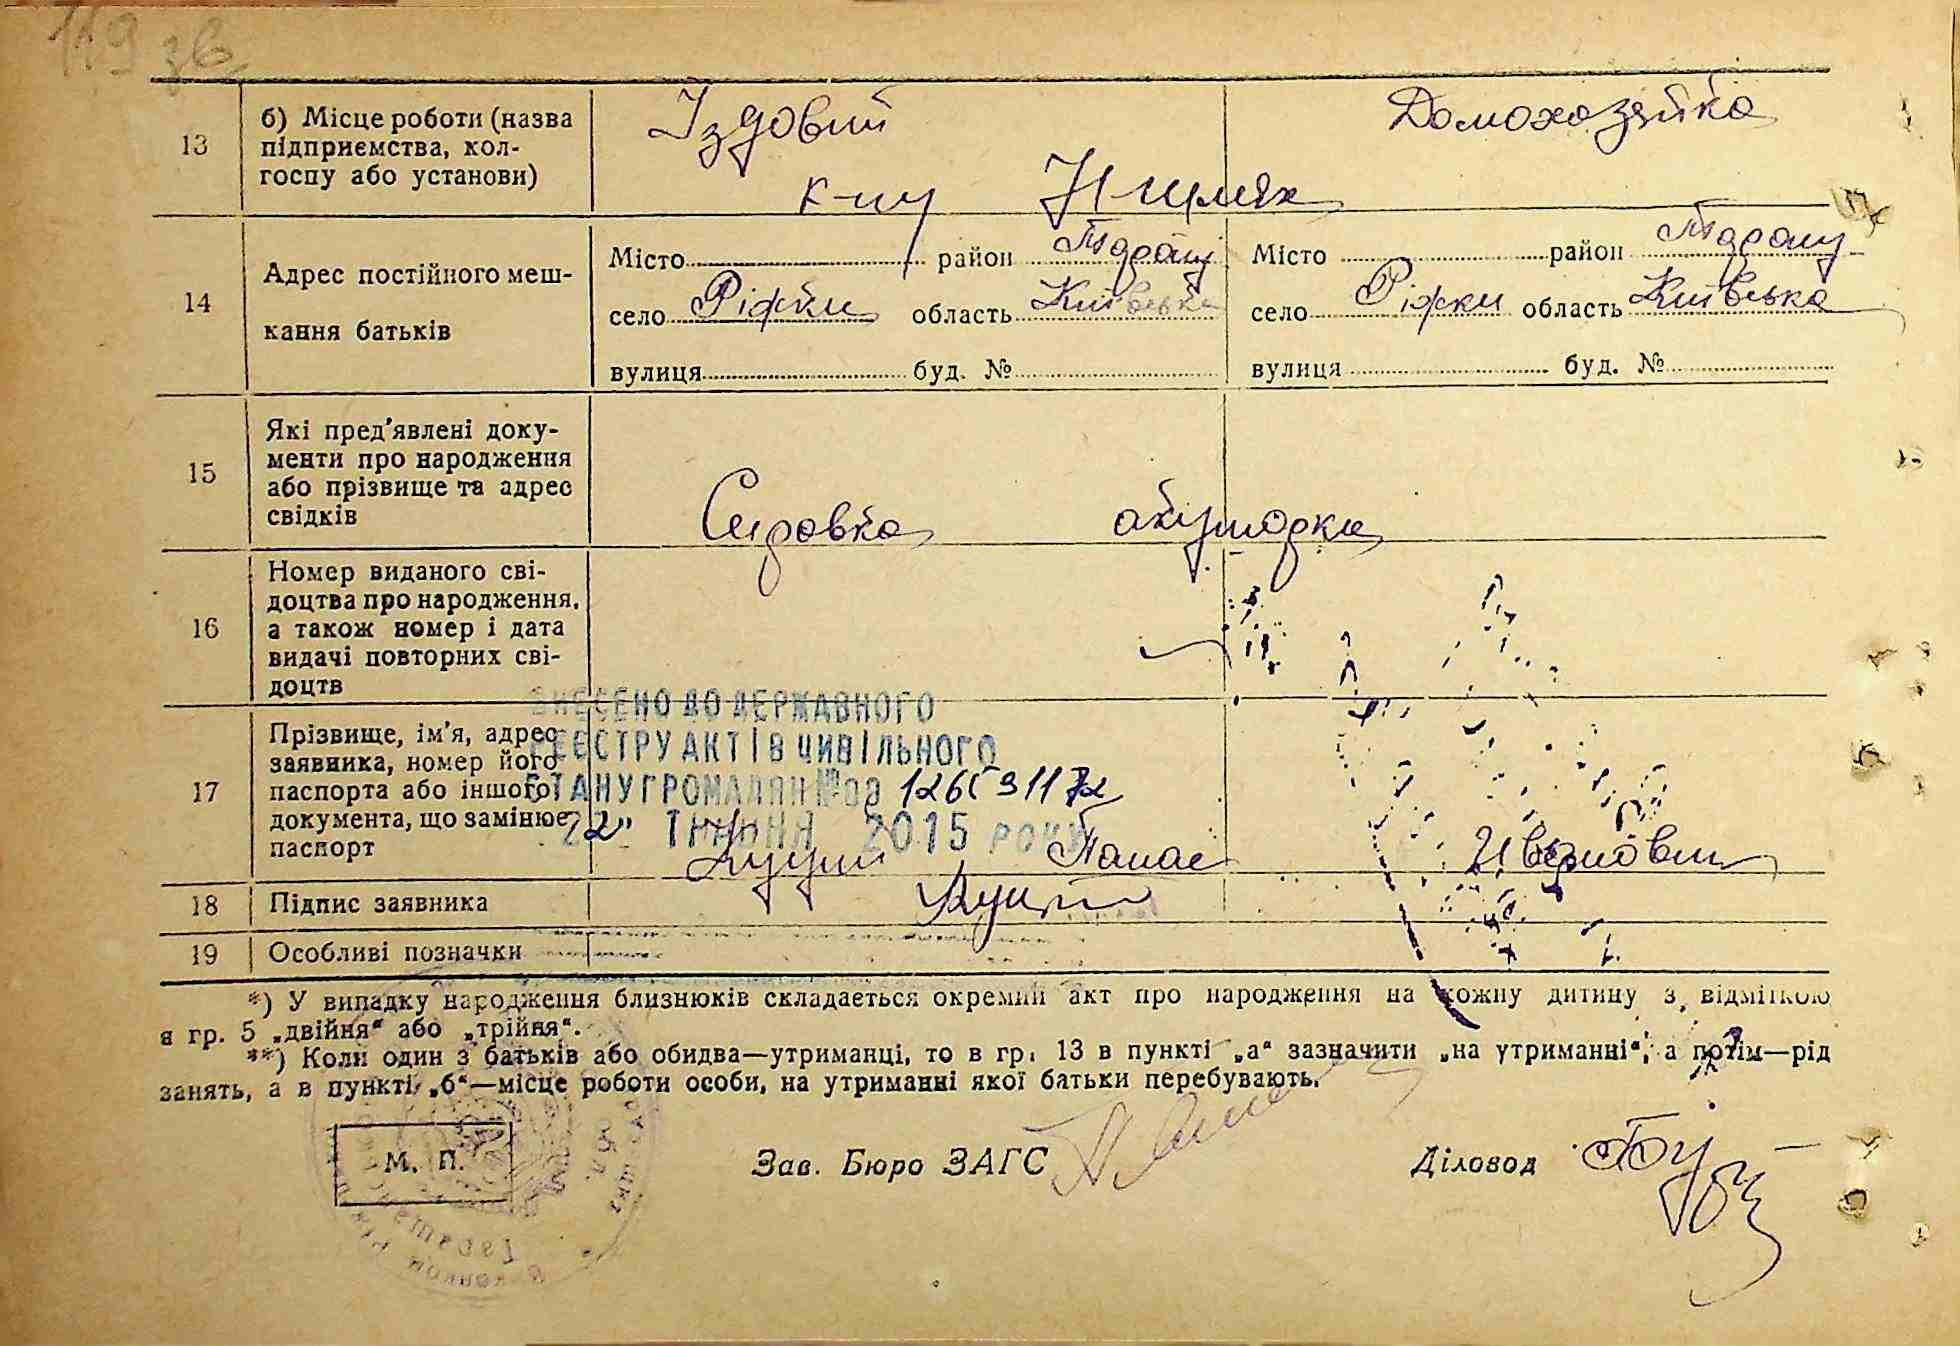 119 зв
13
б) Місце роботи (назва
підприємства, кол-
госпу або установи)
Їздовий
Домохазяйка
к-пу Н-шлях
14
Адрес постійного меш-
кання батьків
Місто район
село Ріжки область Київська
вулиця буд. №
Місто район
село Ріжки область Київська
вулиця буд. №
15
Які пред'явлені доку-
менти про народження
або прізвище та адрес
свідків
Справка акушорки
16
Номер виданого сві-
доцтва про народження,
а також номер і дата
видачі повторних сві-
доцтв
17
Прізвище, ім'я, адрес
заявника, номер його
паспорта або іншого
документа, що замінює
паспорт
ВНЕСЕНО ДО ДЕРЖАВНОГО
РЕЄСТРУ АКТІВ ЦИВІЛЬНОГО
СТАНУ ГРОМАДЯН №00
"22" ТРАВНЯ 2015 РОКУ
Панас
18
Підпис заявника
19
Особливі позначки
*) У випадку народження близнюків складається окремий акт про народження на кожну дитину з відміткою
в гр. 5 „двійня“ або „трійня“.
**) Коли один з батьків або обидва—утриманці, то в гр. 13 в пункті „а“ зазначити „на утриманні“, а потім—рід
занять, а в пункті „б“—місце роботи особи, на утриманні якої батьки перебувають.
М. П.
Зав. Бюро ЗАГС
Діловод